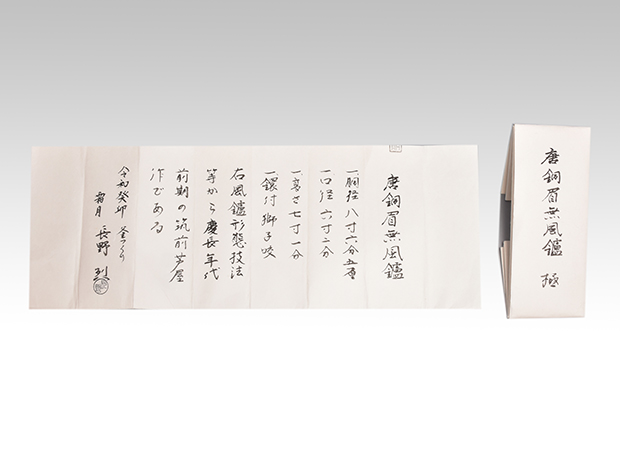 唐銅眉無風鑪
一胴径八寸六分五厘
一口径六寸二分
一高さ七寸一分
一鐶付獅子咬
右風鑪形態技法
等から慶長年代
前期の筑前芦屋
作である
令和癸卯 釜つくり
霜月 長野 烈
唐銅眉無風鑪 極